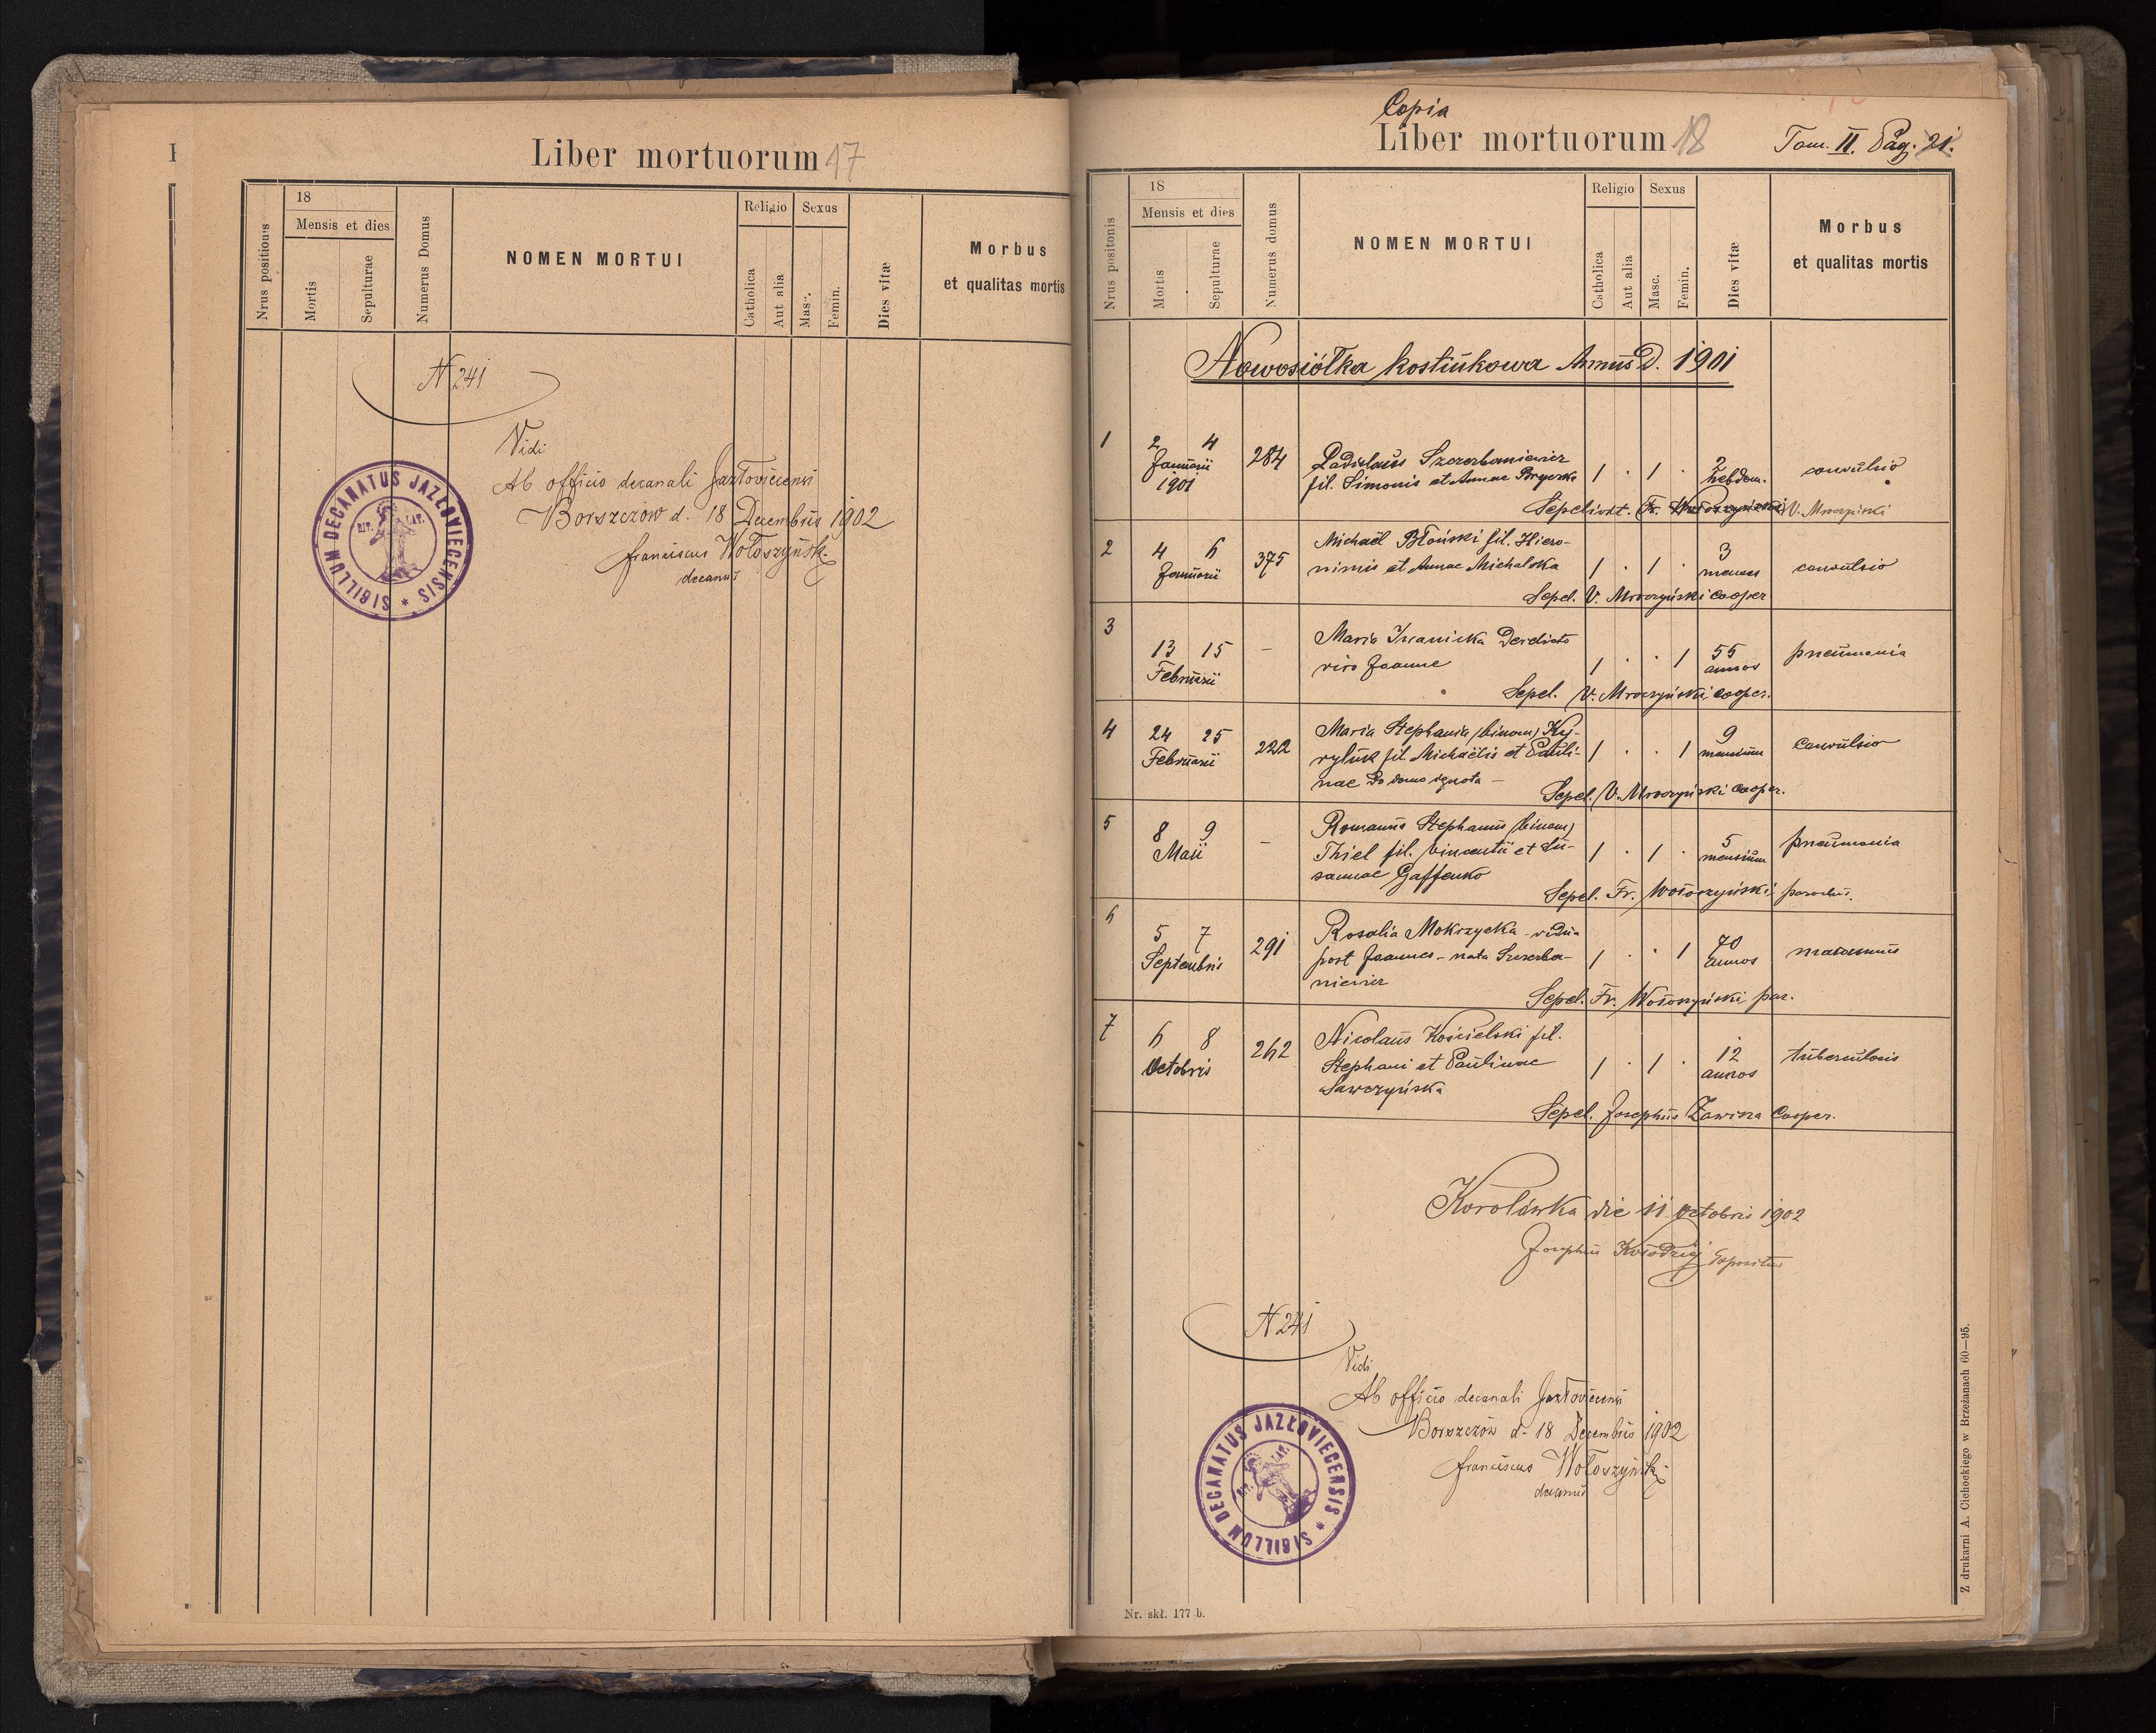 Liber mortuorum 17
Nrus positionis
18
Mensis et dies
Mortis
Sepulturae
Numerus Domus
NOMEN MORTUI
Religio
Catholica
Aut alia
Sexus
Masc.
Femin.
Dies vitæ
Morbus
et qualitas mortis
N 241
Vidi
Ab officio decanali Jazłoviecensi
Borszczów d. 18 Decembris 1902
Franciscus Wołoszyński
decanus
SIGILLUM DECANATUS JAZŁOVIECENSIS *
RIT. LAT.
Copia
Liber mortuorum 18
Tom. II. Pag. 21.
Nrus positonis
18
Mensis et dies
Mortis
Sepulturae
Numerus domus
NOMEN MORTUI
Religio
Catholica
Aut alia
Sexus
Masc.
Femin.
Dies vitæ
Morbus
et qualitas mortis
Nowosiółka kostiukowa Annus D. 1901
1 2 4 Januarii 1901 284 Ladislaus Szczerbaniewicz 1 . 1 . 2 hebdom. convulsio
fil. Simonis et Annae
Sepelivit. Fr. Wołoszyński V. Mroczyński
2 4 6 Januarii 375 Michaël Błoński fil. Hiero-
nimis et Annae Michalska 1 . 1 . 3 menses convulsio
Sepel. V. Mroczyński cooper
3 13 15 Februarii – Maria Iwanicka Derelicto
viro Joanne 1 . . 1 55 annos pneumonia
Sepel. V. Mroczyński cooper.
4 24 25 Februarii 222 Maria Stephania (binom) Ky-
ryluk fil. Michaëlis et Pauli- 1 . . 1 9 mensium Convulsio
nae De domo ignota –
Sepel. V. Mroczyński cooper.
5 8 9 Maii – Romanus Stephanus (binom)
Thiel fil. Vincentii et Su- 1 . 1 . 5 mensium pneumonia
sannae Gaffenko
Sepel. Fr. Wołoszyński parochus.
6 5 7 Septembris 291 Rosalia Mokrzycka – vidua
post Joannes – nata Szczerba- 1 . . 1 70 annos marasmus
niewicz
Sepel. Fr. Wołoszyński par.
7 6 8 Octobris 262 Nicolaus Kościelski fil.
Stephani et Paulinae 1 . 1 . 12 annos tuberculosis
Sawczyńska
Sepel. Josephus Zawisza Cooper.
Korolówka die 11 Octobris 1902
Josephus Kołodziej Expositus
N 241
Vidi
Ab officio decanali Jazłoviecensi
Borszczów d. 18 Decembris 1902
Franciscus Wołoszyński
decanus
SIGILLUM DECANATUS JAZŁOVIECENSIS *
RIT. LAT.
Nr. skł. 177 b.
Z drukarni A. Cichockiego w Brzeżanach 60—95.